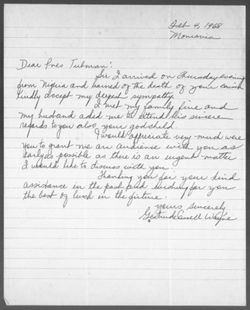 Feb 4, 1968
Monrovia
Dear Pres Tubman:
Sir I arrived on Thursday evening
from Nigeria and learned of the death of your
kindly accept my deepest sympathy.
I met my family fine and
my husband asked me to extend his sincere
regards to you also your godchild.
I would appreciate very much were
you to grant me an audience with you as
early as possible as there is an urgent matter
I would like to discuss with you.
Thanking you for your kind
assistance in the past and wishing for you
the best of luck in the future.
yours sincerely
Gertrude